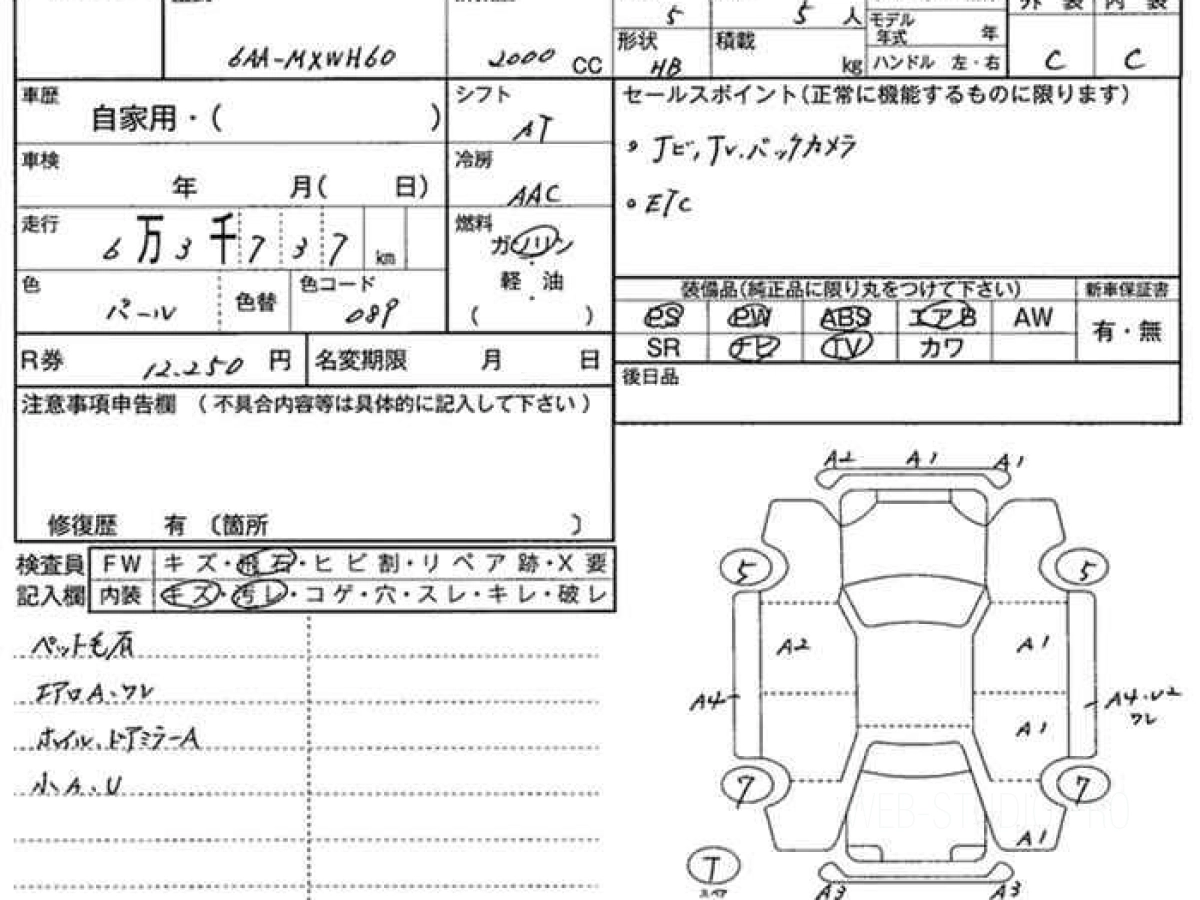 5
5 人
外 装 内 装
モデル
年式 年
6AA-MXWH60
2000 CC
形状
HB
積載
kg
ハンドル 左・右
C
C
車歴
自家用・( )
シフト
AT
セールスポイント(正常に機能するものに限ります)
・ナビ,TV.バックカメラ
・ETC
車検
年 月( 日)
冷房
AAC
走行
6万3千737 km
燃料
ガソリン
軽・油
( )
色
パール
色替
色コード
089
装備品(純正品に限り丸をつけて下さい)
新車保証書
PS PW ABS エアB AW
SR ナビ TV カワ
有・無
R券
12.250 円
名変期限 月 日
後日品
注意事項申告欄 (不具合内容等は具体的に記入して下さい)
修復歴 有 〔箇所 〕
検査員
記入欄
FW キズ・飛石・ヒビ割・リペア跡・X要
内装 キズ・汚レ・コゲ・穴・スレ・キレ・破レ
ペット毛有
エアロA.ワレ
ホイル.ドアミラーA
小A.U
A2 A1 A1
5
5
A2
A1
A4
A4.U2
ワレ
A1
7
7
A1
T
スペア
A3
A3
WEB-STUDIO PRO